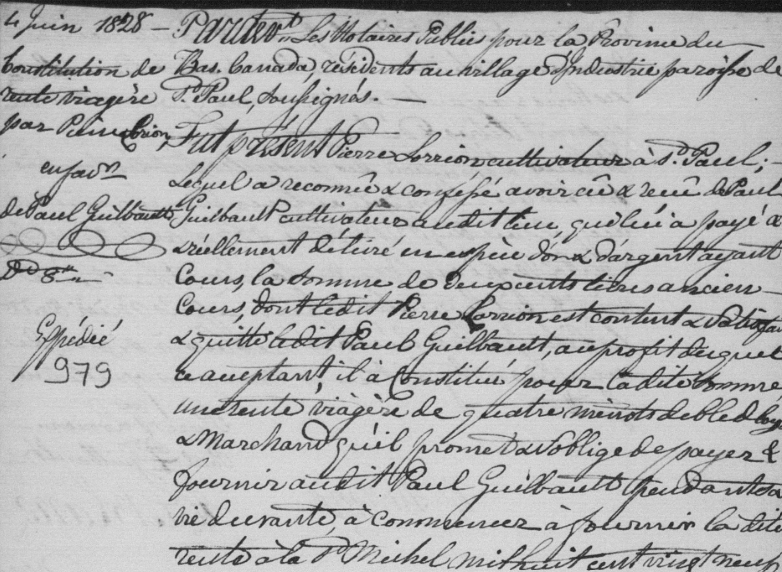 4 Juin 1828 –
Constitution de
rente viagère
par Pierre Lorion
en fav.r
de Paul Guilbault
Expédié
979
Pardevt. Les Notaires Publics pour la Province du
Bas. Canada, résidents au village d'Industrie paroisse de
St. Paul, soussignés. —
Fut présent Pierre Lorrion cultivateur à St. Paul; –
Lequel a reconnu & confessé avoir eû & reçu de Paul
Guilbault cultivateur audit lieu, qui lui a payé &
& réellement délivré en espèce d'or & d'argent ayant
Cours, la Somme de deux cents livres ancien –
Cours, dont ledit Pierre Lorrion est content & satisfait
& quitte ledit Paul Guilbault, au profit duquel
ce acceptant, il à Constitué pour ladite Somme
une rente viagère de quatre minots de bled loyal
& Marchand qu'il promet & s'oblige de payer &
fournir audit Paul Guilbault pendant sa
vie durante, à commencer à fournir la dite
rente à la St. Michel mil huit cent vingt neuf